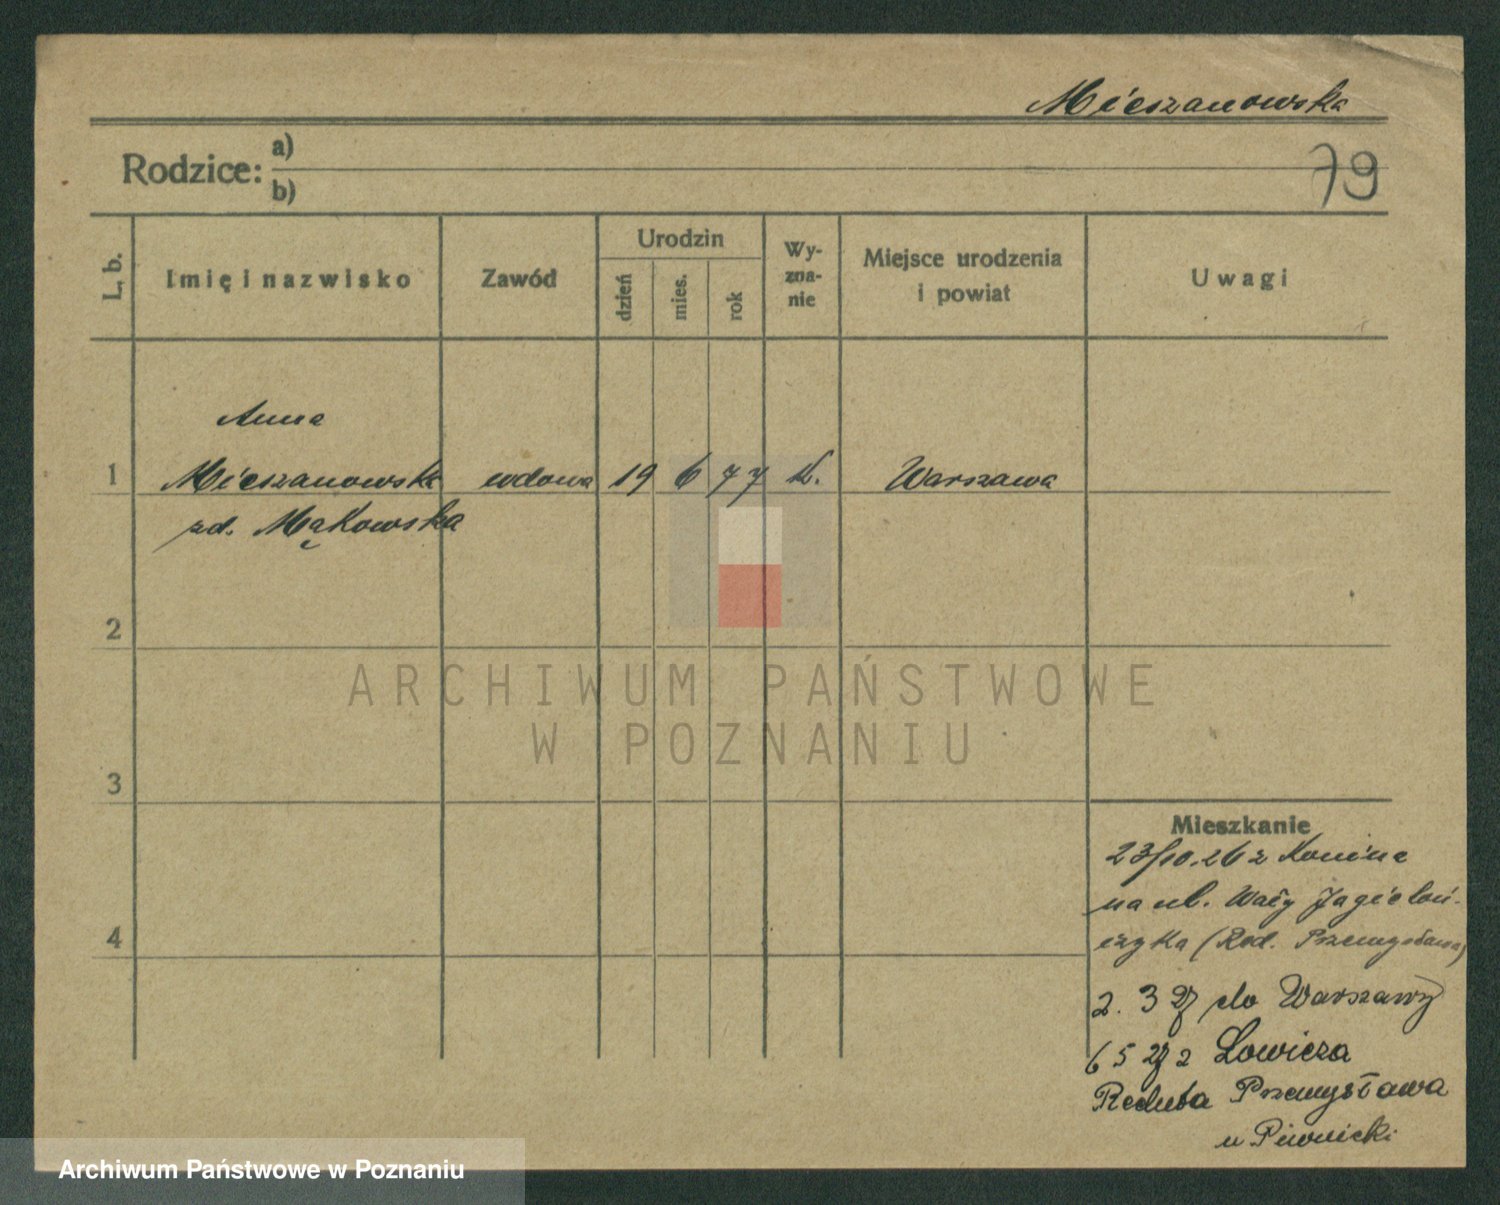 Mieszanowska
Rodzice: a)
b)
79
L. b.
Imię i nazwisko
Zawód
Urodzin
dzień
mies.
rok
Wy-
zna-
nie
Miejsce urodzenia
i powiat
Uwagi
Anna
1 Mieszanowska wdowa 19 6 77 k. Warszawa
zd. Mąkowska
2
ARCHIWUM PAŃSTWOWE
W POZNANIU
3
4
Mieszkanie
23/10.26 z Konina
na ul. Wały Jagieloń-
czyka (Red. Przemysława)
2. 3 27 do Warszawy
6 5 27 z Łowicza
Reduta Przemysława
u Piwnicki
Archiwum Państwowe w Poznaniu